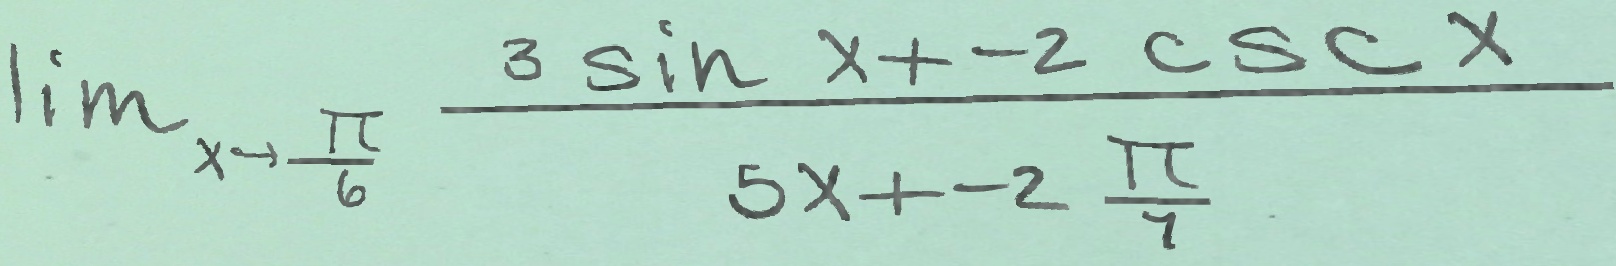 lim x→π/6 (3 sin x + -2 csc x)/(5x + -2 π/7)